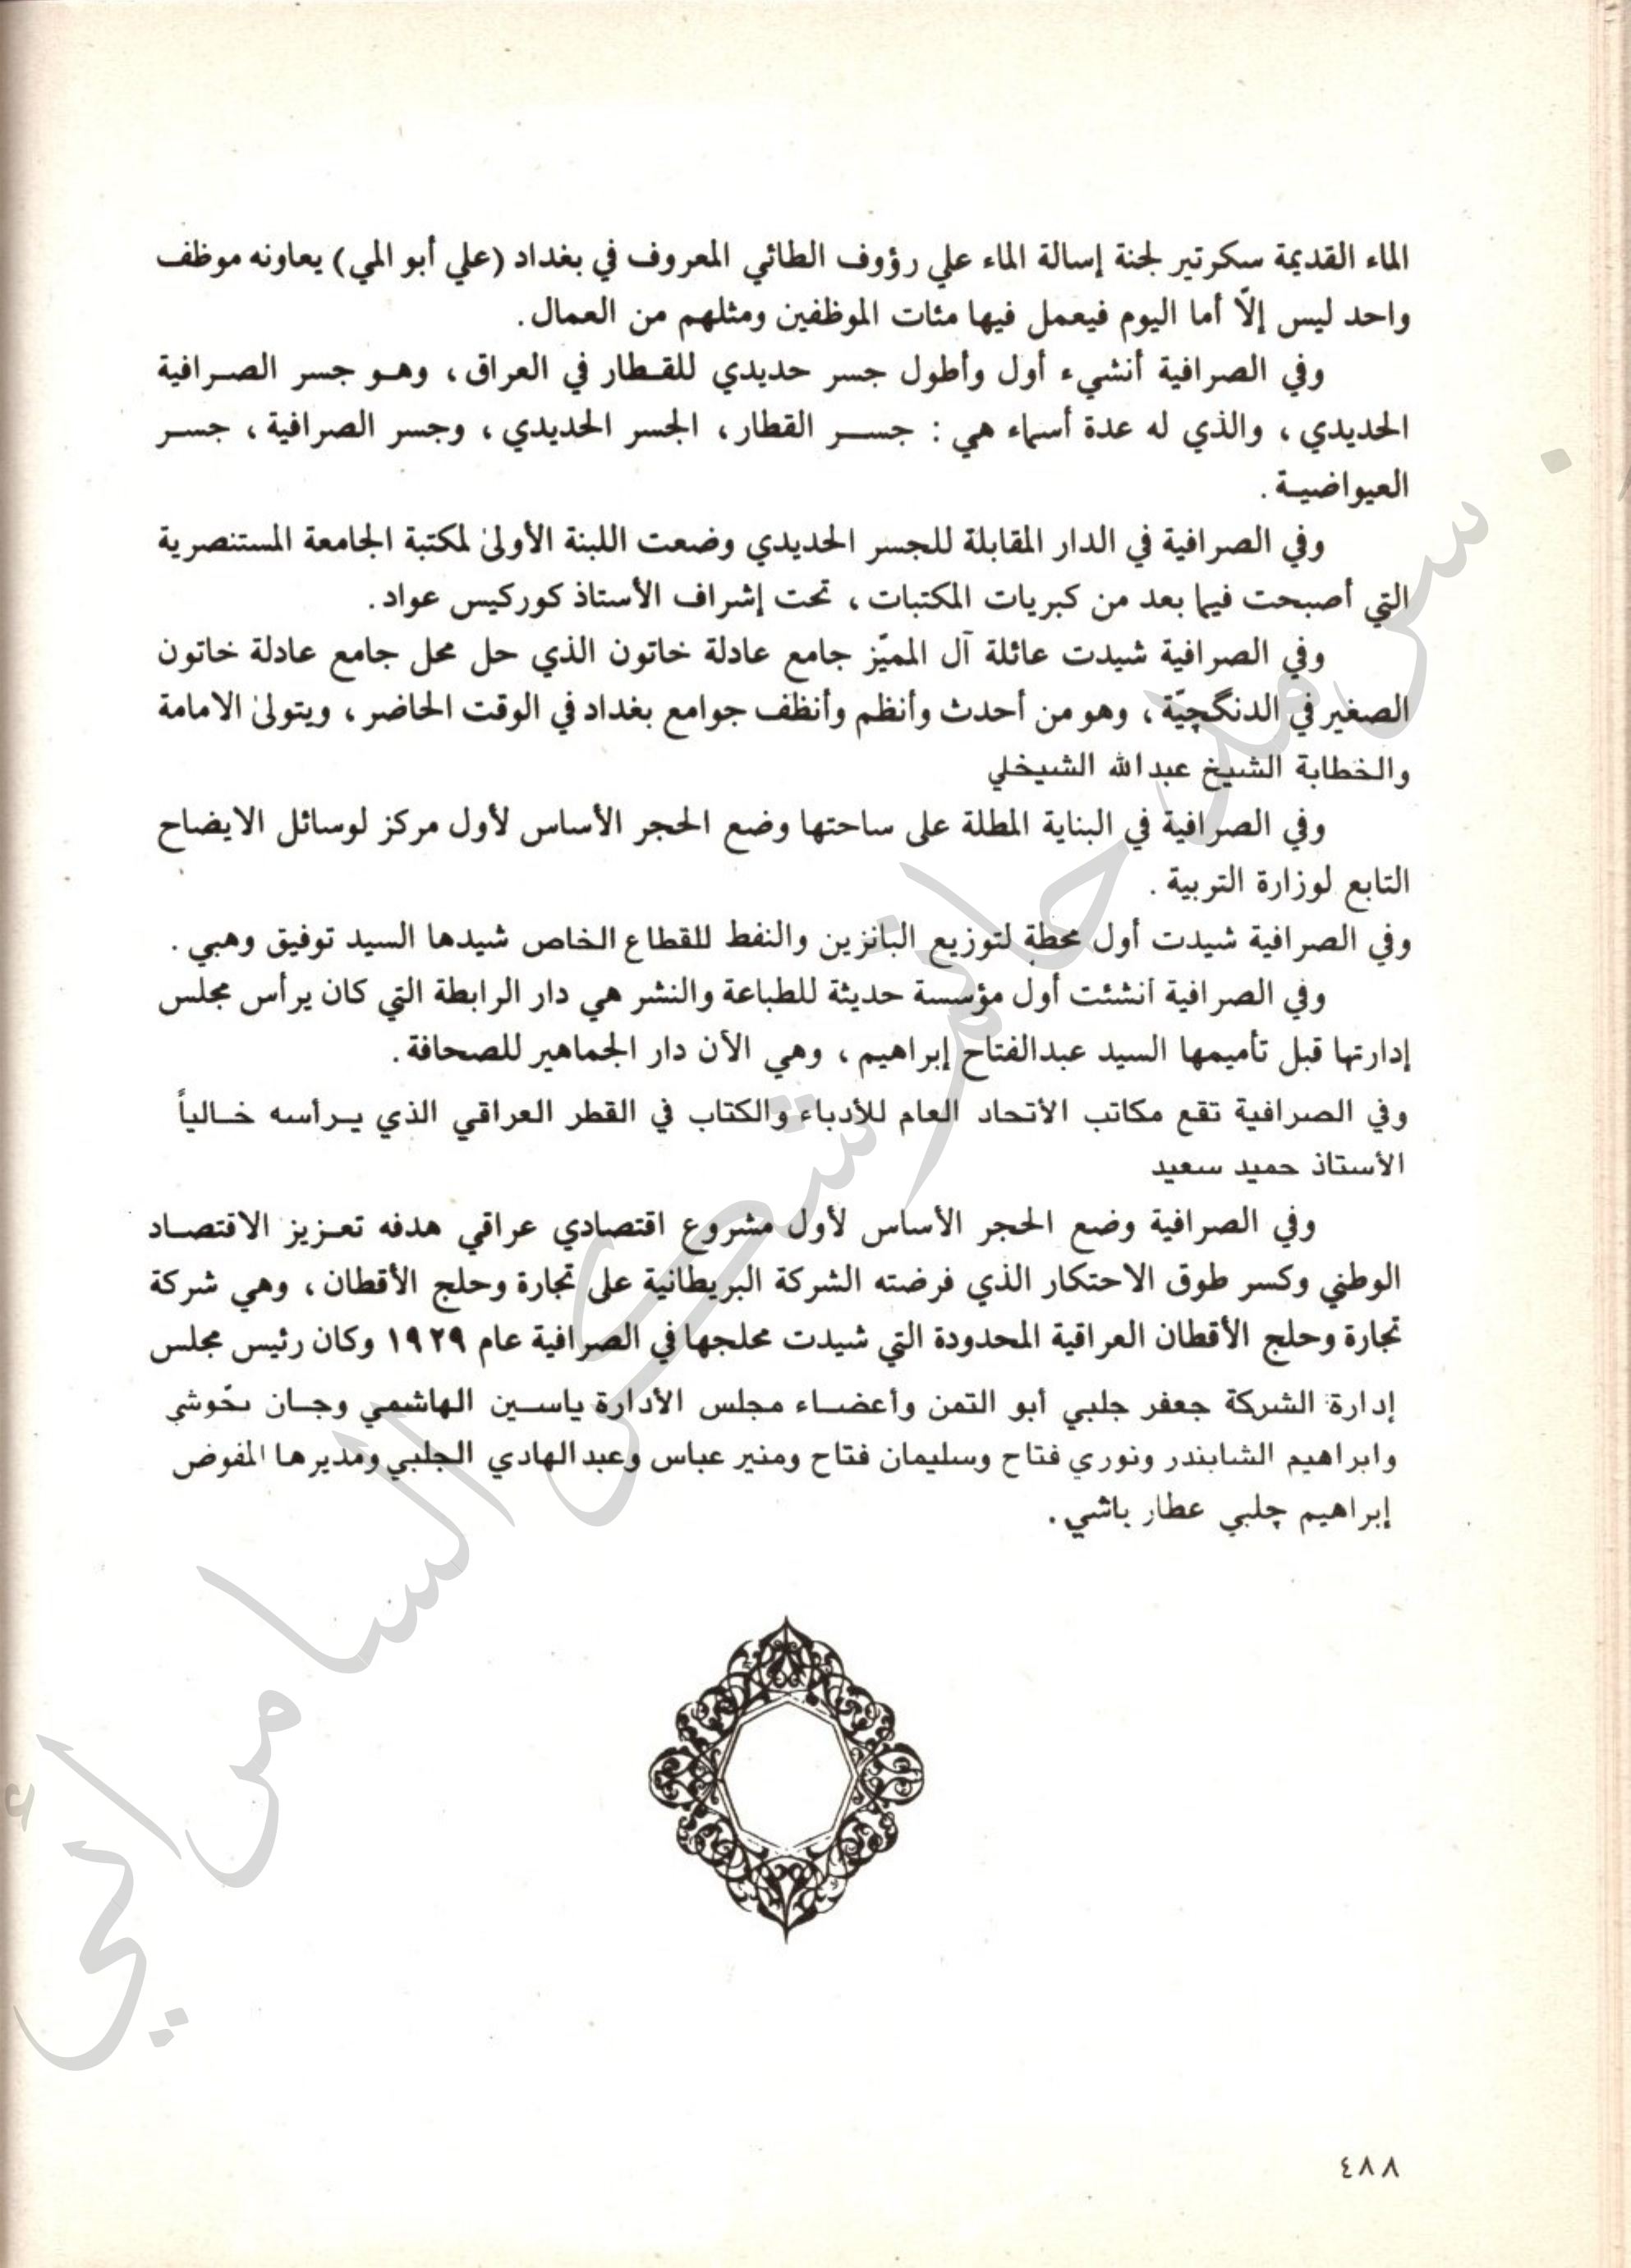 الماء القديمة سكرتير لجنة إسالة الماء علي رؤوف الطائي المعروف في بغداد (علي أبو المي) يعاونه موظف
واحد ليس إلّا أما اليوم فيعمل فيها مئات الموظفين ومثلهم من العمال .
وفي الصرافية أنشيء أول وأطول جسر حديدي للقطار في العراق ، وهو جسر الصرافية
الحديدي ، والذي له عدة أسماء هي : جسر القطار ، الجسر الحديدي ، وجسر الصرافية ، جسر
العيواضية .
وفي الصرافية في الدار المقابلة للجسر الحديدي وضعت اللبنة الأولى لمكتبة الجامعة المستنصرية
التي أصبحت فيما بعد من كبريات المكتبات ، تحت إشراف الأستاذ كوركيس عواد .
وفي الصرافية شيدت عائلة آل المميّز جامع عادلة خاتون الذي حل محل جامع عادلة خاتون
الصغير في الدنگچيّة ، وهو من أحدث وأنظم وأنظف جوامع بغداد في الوقت الحاضر ، ويتولى الامامة
والخطابة الشيخ عبدالله الشيخلي
وفي الصرافية في البناية المطلة على ساحتها وضع الحجر الأساس لأول مركز لوسائل الايضاح
التابع لوزارة التربية .
وفي الصرافية شيدت أول محطة لتوزيع البانزين والنفط للقطاع الخاص شيدها السيد توفيق وهبي .
وفي الصرافية أنشئت أول مؤسسة حديثة للطباعة والنشر هي دار الرابطة التي كان يرأس مجلس
إدارتها قبل تأميمها السيد عبدالفتاح إبراهيم ، وهي الأن دار الجماهير للصحافة .
وفي الصرافية تقع مكاتب الأتحاد العام للأدباء والكتاب في القطر العراقي الذي يرأسه خالياً
الأستاذ حميد سعيد
وفي الصرافية وضع الحجر الأساس لأول مشروع اقتصادي عراقي هدفه تعزيز الاقتصاد
الوطني وكسر طوق الاحتكار الذي فرضته الشركة البريطانية على تجارة وحلج الأقطان ، وهي شركة
تجارة وحلج الأقطان العراقية المحدودة التي شيدت محلجها في الصرافية عام ١٩٢٩ وكان رئيس مجلس
إدارة الشركة جعفر جلبي أبو التمن وأعضاء مجلس الأدارة ياسين الهاشمي وجان
وابراهيم الشابندر ونوري فتاح وسليمان فتاح ومنير عباس وعبدالهادي الجلبي ومديرها المفوض
إبراهيم چلبي عطار باشي .
سرمد حاتم شكر السامرائي
٤٨٨